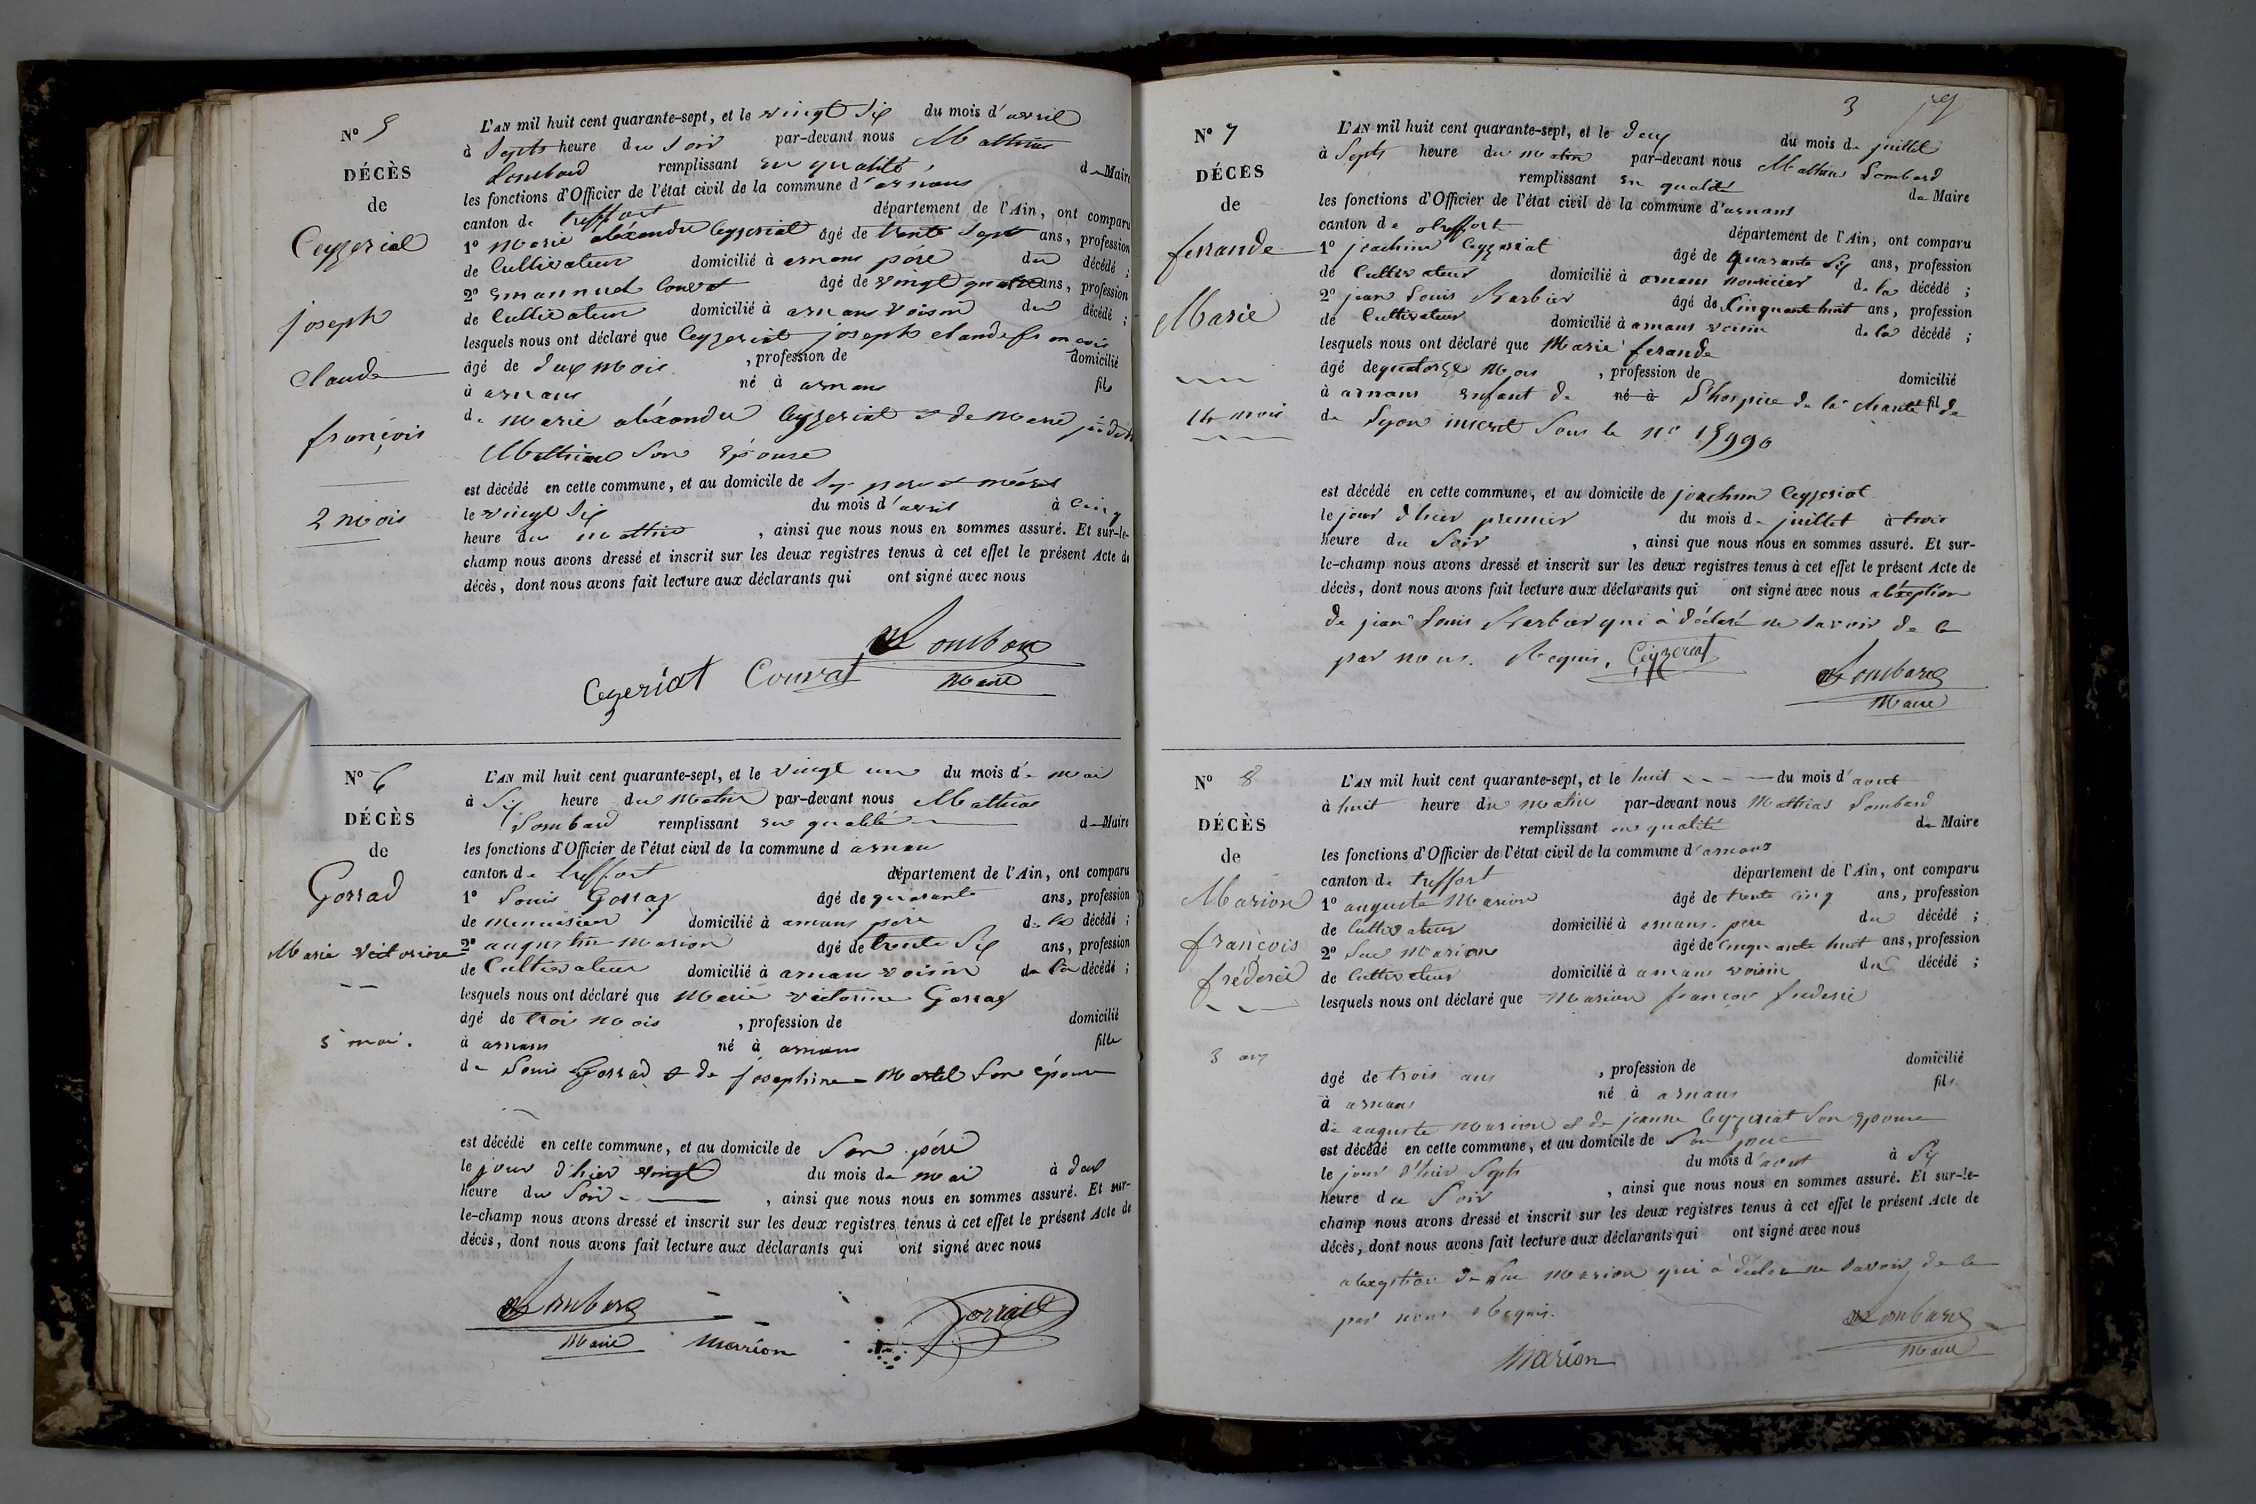 N° 5
DÉCÈS
de
Ceyzeriat
joseph
claude
françois
2 mois
L'AN mil huit cent quarante-sept, et le vingt six du mois d'avril
à Septs heure du Soir par-devant nous Mathias
Lombard remplissant en qualité de Maire
les fonctions d'Officier de l'état civil de la commune d'arnans
canton de treffort département de l'Ain, ont comparu
1° Marie aléxandre Ceyzeriat âgé de trente Sept ans, profession
de Cultivateur domicilié à arnans pére du décédé ;
2° Emannuel Couvat âgé de vingt quatre ans, profession
de Cultivateur domicilié à arnans voisin du décédé ;
lesquels nous ont déclaré que Ceyzeriat joseph claude francois
âgé de deux mois , profession de domicilié
à arnans né à arnans fils
de Marie aléxandre Ceyzeriat et de Marie
Mathieu Son épouse
est décédé en cette commune, et au domicile de Ses pere et mére
le vingt Six du mois d'avril à Cinq
heure du Mattin , ainsi que nous nous en sommes assuré. Et sur-le-
champ nous avons dressé et inscrit sur les deux registres tenus à cet effet le présent Acte de
décès, dont nous avons fait lecture aux déclarants qui ont signé avec nous
Lombard
Ceyzeriat Couvat Maire
N° 6
DÉCÈS
de
Gorrad
Marie victorine
3 moi.
L'AN mil huit cent quarante-sept, et le vingt un du mois de mai
à Six heure du Matin par-devant nous Mathias
Lombard remplissant en qualité de Maire
les fonctions d'Officier de l'état civil de la commune d arnan
canton de treffort département de l'Ain, ont comparu
1° Louis Gorraz âgé de quarante ans, profession
de menuisier domicilié à arnans pére de la décédé ;
2° augustin Marion âgé de trente Six ans, profession
de Cultivateur domicilié à arnan voisin de la décédé ;
lesquels nous ont déclaré que Marie victorine Gorraz
âgé de trois Mois , profession de domicilié
à arnans né à arnans fille
de Louis Gorrad et de josephine Martel Son épouse
est décédé en cette commune, et au domicile de Son pére
le jour d'hier vingt du mois de Mai à deux
heure du Soir , ainsi que nous nous en sommes assuré. Et sur-
le-champ nous avons dressé et inscrit sur les deux registres tenus à cet effet le présent Acte de
décès, dont nous avons fait lecture aux déclarants qui ont signé avec nous
Lombard
Maire Marion
3
N° 7
DÉCÈS
de
ferrande
Marie
14 mois
L'AN mil huit cent quarante-sept, et le deux du mois de juillet
à Septs heure du matin par-devant nous Mathias Lombard
remplissant en qualité de Maire
les fonctions d'Officier de l'état civil de la commune d'arnans
canton de treffort département de l'Ain, ont comparu
1° joachim Ceyzeriat âgé de quarante Six ans, profession
de Cultivateur domicilié à arnans nourricier de la décédé ;
2° jean Louis Barbier âgé de Cinquante huit ans, profession
de Cultivateur domicilié à arnans voisin de la décédé ;
lesquels nous ont déclaré que Marie ferande
âgé de quatorze Mois , profession de domicilié
à arnans enfant de né à L'hospice de la charité fil de
de Lyon inscrit Sous le N° 15990
est décédé en cette commune, et au domicile de joachim Ceyzeriat
le jour d'hier premier du mois de juillet à trois
heure du Soir , ainsi que nous nous en sommes assuré. Et sur-
le-champ nous avons dressé et inscrit sur les deux registres tenus à cet effet le présent Acte de
décès, dont nous avons fait lecture aux déclarants qui ont signé avec nous abxeption
de jean Louis Barbier qui à déclaré ne savoir de ce
par nous Requis. Ceyzeriat
Lombard
Maire
N° 8
DÉCÈS
de
Marion
françois
fréderic
3 ans
L'AN mil huit cent quarante-sept, et le huit du mois d'aout
à huit heure du matin par-devant nous Mathias Lombard
remplissant en qualité de Maire
les fonctions d'Officier de l'état civil de la commune d'arnans
canton de treffort département de l'Ain, ont comparu
1° auguste Marion âgé de trente cinq ans, profession
de Cultivateur domicilié à arnans pere du décédé ;
2° Luc Marion âgé de Cinquante huit ans, profession
de Cultivateur domicilié à arnans voisin du décédé ;
lesquels nous ont déclaré que Marion françois frederic
âgé de trois ans , profession de domicilié
à arnans né à arnans fils
de auguste Marion et de jeanne Ceyzeriat Son epouse
est décédé en cette commune, et au domicile de Son pere
le jour d'hier Septs du mois d'aout à Six
heure du Soir , ainsi que nous nous en sommes assuré. Et sur-le-
champ nous avons dressé et inscrit sur les deux registres tenus à cet effet le présent Acte de
décès, dont nous avons fait lecture aux déclarants qui ont signé avec nous
abxeption de Luc Marion qui à declaré ne savoir de ce
par nous Requis.
Lombard
Marion Maire